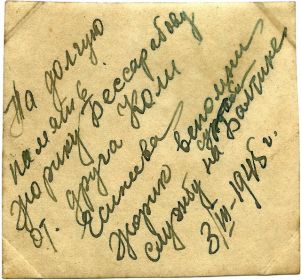 На долгую
память
Жорику Бессарабову
от друга Коли
Есипеева
Жорик вспомни
службу на Балтике
3/VII-1945 г.